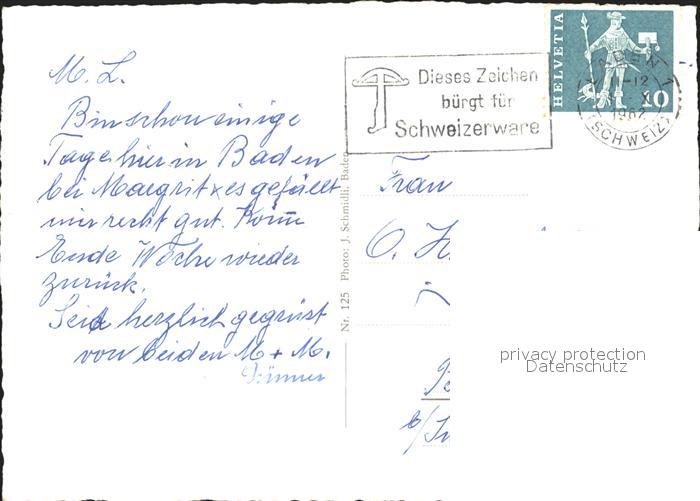 M. L.
Bin schon einige
Tage hier in Baden
bei Margrit & es gefällt
mir recht gut. Komme
Ende Woche wieder
zurück.
Seid herzlich gegrüst
von beiden M + M.
Nr. 125 Photo: J. Schmidli, Baden
Dieses Zeichen
bürgt für
Schweizerware
HELVETIA
10
(SCHWEIZ)
Frau
O. H.
privacy protection
Datenschutz